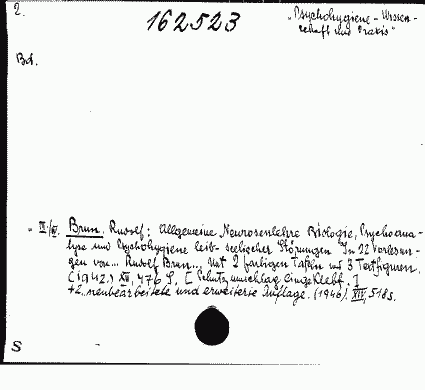 2.
162523
"Psychohygiene - Wissen-
schaft und Praxis"
Bd.
" III/IV. Brun, Rudolf: Allgemeine Neurosenlehre Biologie, Psychoana-
lyse und Psychohygiene leib-seelischer Störungen In 22 Vorlesun-
gen von... Rudolf Brun... Mit 2 farbigen Tafeln und 3 Textfiguren.
(1942.) XII, 476 S. [Schutzumschlag eingeklebt.]
+2. neubearbeitete und erweiterte Auflage. (1946). XIV, 518 S.
S